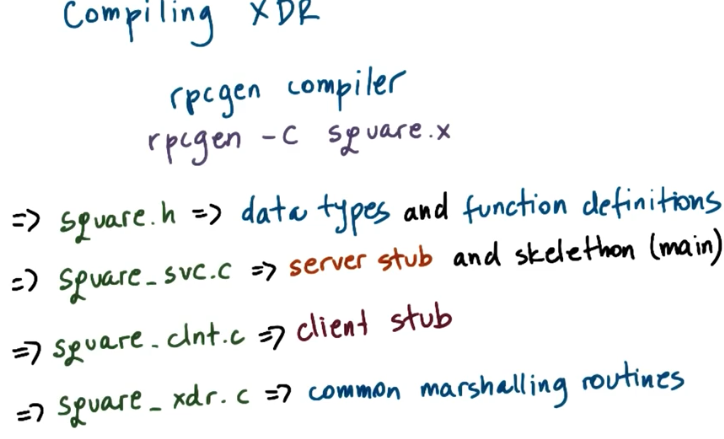 Compiling XDR
rpcgen compiler
rpcgen -C square.x
=> square.h => data types and function definitions
=> square_svc.c => server stub and skelethon (main)
=> square_clnt.c => client stub
=> square_xdr.c => common marshalling routines